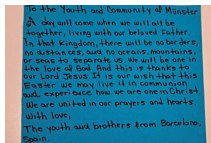 To the Youth and Community of Münster
A day will come when we will all be
together, living with our beloved Father.
In that kingdom, there will be no borders,
no distances, and no oceans, mountains,
or seas to separate us. We will be one in
the love of God. And this is thanks to
our Lord Jesus. It is our wish that this
Easter we may live it in communion
and experience how we are one in Christ.
We are united in our prayers and hearts.
With love,
The youth and brothers from Barcelona,
Spain.